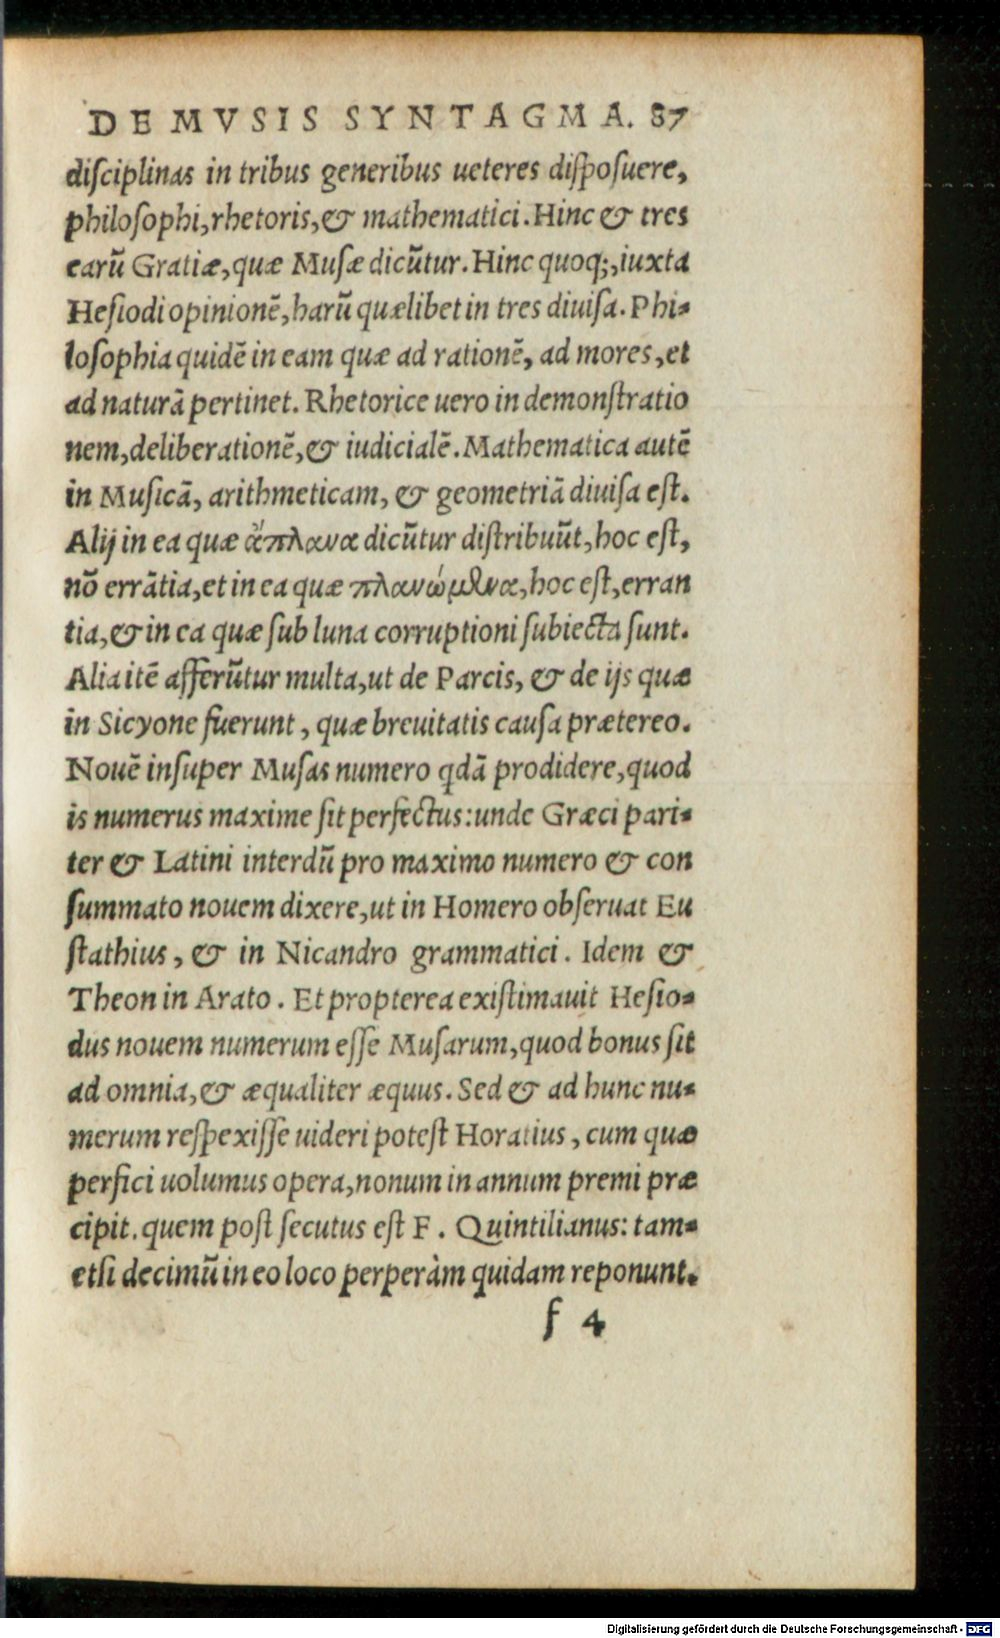 DE MVSIS SYNTAGMA. 87
disciplinas in tribus generibus ueteres disposuere,
philosophi, rhetoris, & mathematici. Hinc & tres
earũ Gratiæ, quæ Musæ dicũtur. Hinc quoq;, iuxta
Hesiodi opinionẽ, harũ quælibet in tres diuisa. Phi-
losophia quidẽ in eam quæ ad rationẽ, ad mores, et
ad naturã pertinet. Rhetorice uero in demonstratio
nem, deliberationẽ, & iudicialẽ. Mathematica autẽ
in Musicã, arithmeticam, & geometriã diuisa est.
Alij in ea quæ ἄπλανα dicũtur distribuũt, hoc est,
nõ errãtia, et in ea quæ πλανώμενα, hoc est, erran
tia, & in ea quæ sub luna corruptioni subiecta sunt.
Alia itẽ afferũtur multa, ut de Parcis, & de ijs quæ
in Sicyone fuerunt, quæ breuitatis causa prætereo.
Nouẽ insuper Musas numero qdã prodidere, quod
is numerus maxime sit perfectus: unde Græci pari-
ter & Latini interdũ pro maximo numero & con
summato nouem dixere, ut in Homero obseruat Eu
stathius, & in Nicandro grammatici. Idem &
Theon in Arato. Et propterea existimauit Hesio-
dus nouem numerum esse Musarum, quod bonus sit
ad omnia, & æqualiter æquus. Sed & ad hunc nu-
merum respexisse uideri potest Horatius, cum quæ
perfici uolumus opera, nonum in annum premi præ
cipit. quem post secutus est F. Quintilianus: tam-
etsi decimũ in eo loco perperàm quidam reponunt.
f 4
Digitalisierung gefördert durch die Deutsche Forschungsgemeinschaft - DFG